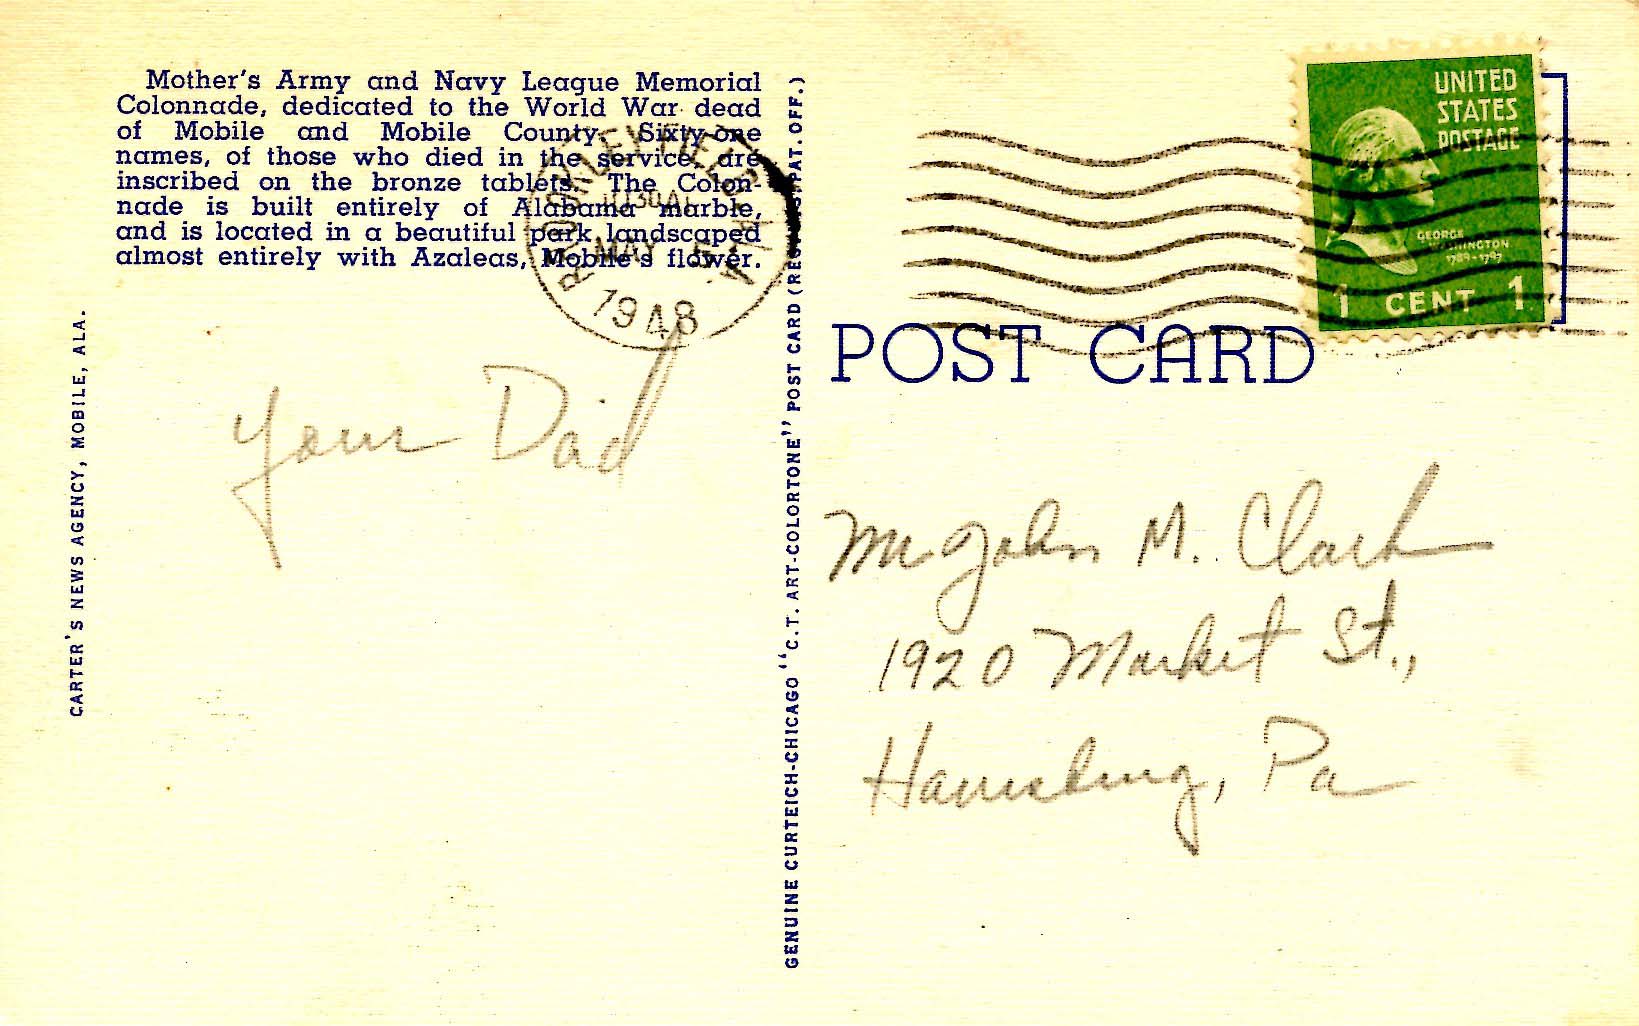 Mother's Army and Navy League Memorial
Colonnade, dedicated to the World War dead
of Mobile and Mobile County. Sixty-one
names, of those who died in the service, are
inscribed on the bronze tablets. The Colon-
nade is built entirely of Alabama marble,
and is located in a beautiful park landscaped
almost entirely with Azaleas, Mobile's flower.
BROOKLEY FIELD, ALA.
1030AM
MAY 5
1948
UNITED
STATES
POSTAGE
GEORGE
WASHINGTON
1789-1797
1 CENT 1
POST CARD
CARTER'S NEWS AGENCY, MOBILE, ALA.
Your Dad
GENUINE CURTEICH-CHICAGO "C.T. ART-COLORTONE" POST CARD (REG. U.S. PAT. OFF.)
Mr John M. Clark
1920 Market St.,
Harrisburg, Pa